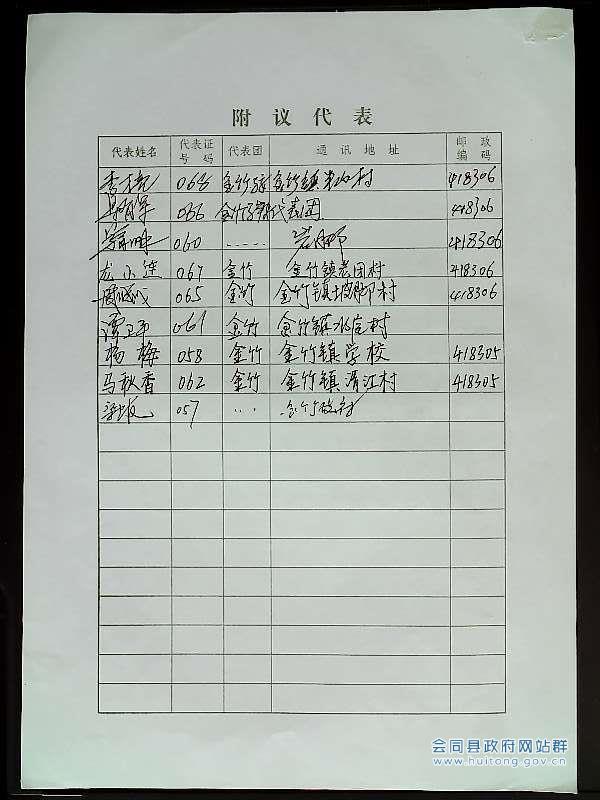 附议代表
代表姓名 代表证号码 代表团 通讯地址 邮政编码
068 金竹 金竹镇 村 418306
066 金竹 代表团 418306
060 ..... 418306
龙小莲 067 金竹 金竹镇老团村 418306
065 金竹 金竹镇 村 418306
谭卫平 061 金竹 金竹镇 村
杨梅 058 金竹 金竹镇学校 418305
马秋香 062 金竹 金竹镇清江村 418305
057 ... 金竹 村
会同县政府网站群
www.huitong.gov.cn